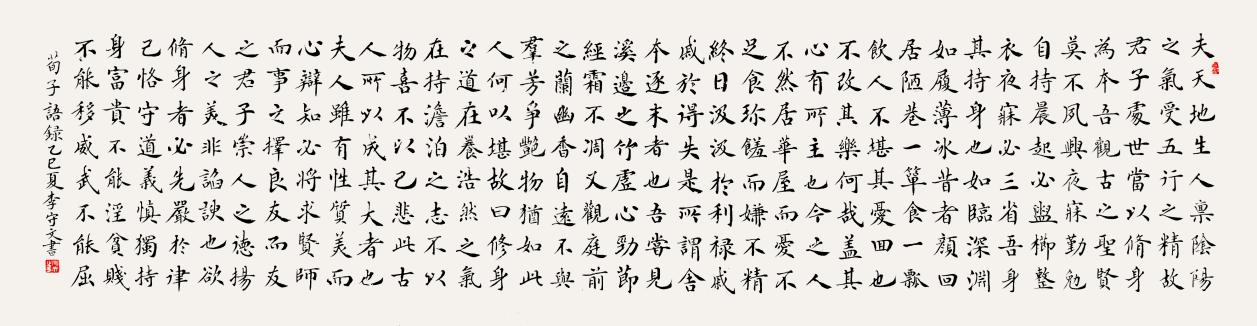 夫天地生人禀陰陽
之氣受五行之精故
君子處世當以脩身
為本吾觀古之聖賢
莫不夙興夜寐勤勉
自持晨起必盥櫛整
衣夜寐必三省吾身
其持身也如臨深淵
如履薄冰昔者顏回
居陋巷一箪食一瓢
飲人不堪其憂回也
不改其樂何哉盖其
心有所主也今之人
不然居華屋而憂不
足食珎饈而嫌不精
終日汲汲於利禄戚
戚於得失是所謂舍
本逐末者也吾甞見
溪邊之竹虛心勁節
經霜不凋又觀庭前
之蘭幽香自遠不與
羣芳爭艷物猶如此
人何以堪故曰修身
之道在養浩然之氣
在持澹泊之志不以
物喜不以己悲此古
人所以成其大者也
夫人雖有性質美而
心辯知必將求賢師
而事之擇良友而友
之君子崇人之德揚
人之美非諂諛也欲
脩身者必先嚴於律
己恪守道義慎獨持
身富貴不能淫貧賤
不能移威武不能屈
荀子語録乙巳夏李守文書